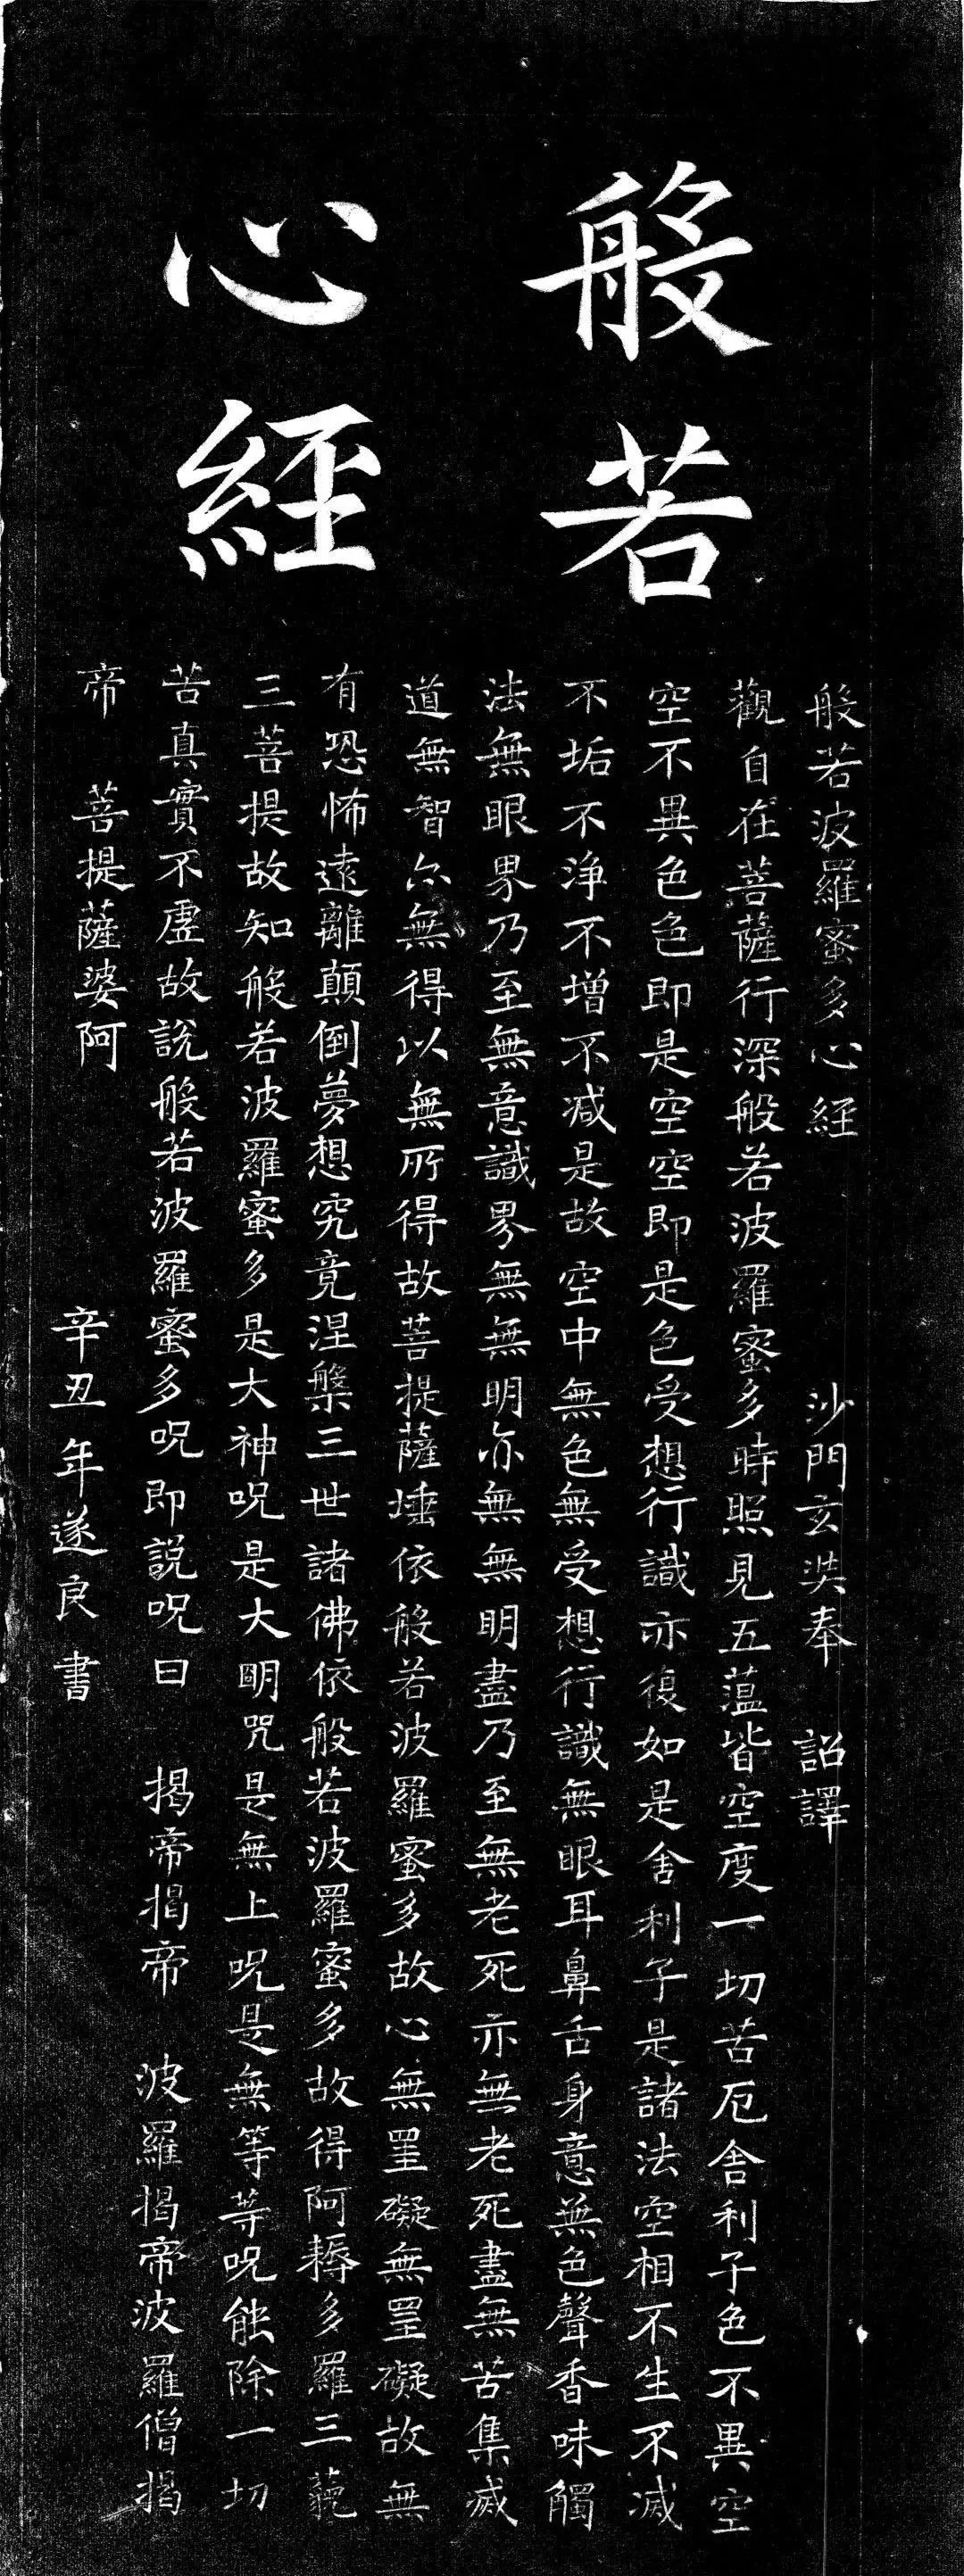 般若
心經
般若波羅蜜多心經 沙門玄奘奉 詔譯
觀自在菩薩行深般若波羅蜜多時照見五蕰皆空度一切苦厄舍利子色不異空
空不異色色即是空空即是色受想行識亦復如是舍利子是諸法空相不生不滅
不垢不淨不增不減是故空中無色無受想行識無眼耳鼻舌身意無色聲香味觸
法無眼界乃至無意識界無無明亦無無明盡乃至無老死亦無老死盡無苦集滅
道無智亦無得以無所得故菩提薩埵依般若波羅蜜多故心無罣礙無罣礙故無
有恐怖遠離顛倒夢想究竟涅槃三世諸佛依般若波羅蜜多故得阿耨多羅三藐
三菩提故知般若波羅蜜多是大神呪是大明咒是無上呪是無等等呪能除一切
苦真實不虛故說般若波羅蜜多呪即說呪曰 揭帝揭帝 波羅揭帝波羅僧揭
帝 菩提薩婆阿
辛丑年遂良書